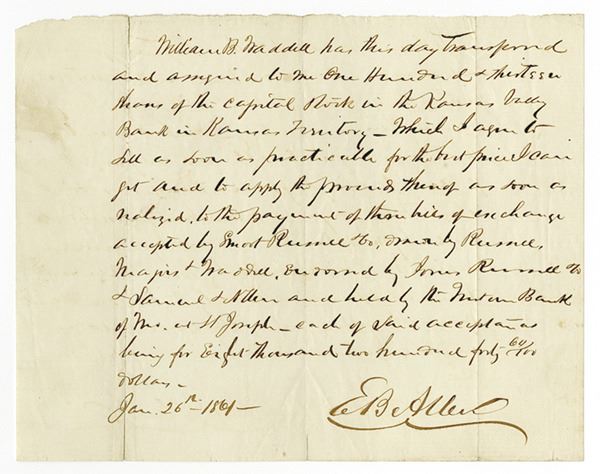 William B. Waddell has this day transferred
and assigned to me One Hundred & thirteen
shares of the capital Stock in the Kansas Vally
Bank in Kansas Territory – Which I agree to
Sell as soon as practicable for the best price I can
get and to apply the proceeds thereof as soon as
realized, to the payment of three bills of exchange
accepted by Russell & Co, drawn by Russell,
Majors & Waddell, endorsed by Jones Russell & Co
& Samuel & Allen and held by the Western Bank
of Mo. at St Joseph – each of said acceptances
being for Eight thousand two hundred forty 60/100
dollars –
Jan. 26th 1861 –
E B Allen